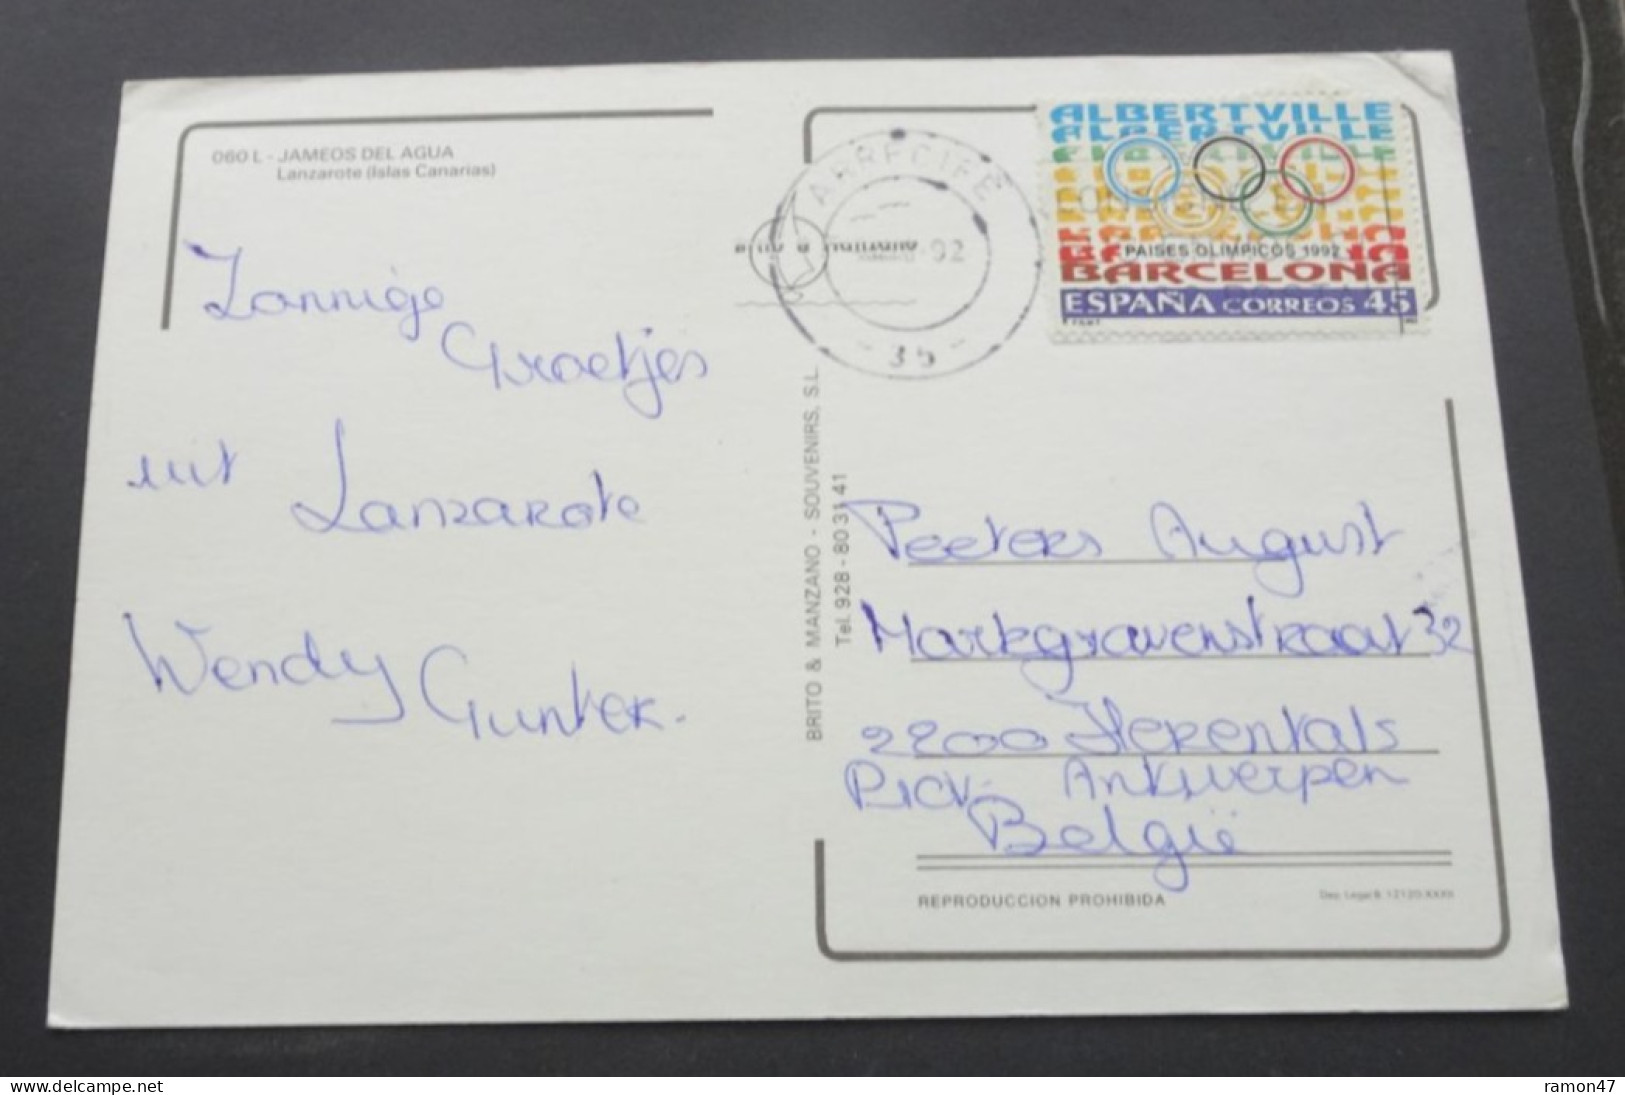 060 L - JAMEOS DEL AGUA
Lanzarote (Islas Canarias)
Zonnige
Groetjes
uit Lanzarote
Wendy Gunter.
ARRECIFE
92
- 35 -
ALBERTVILLE
ALBERTVILLE
PAISES OLIMPICOS 1992
BARCELONA
ESPAÑA CORREOS 45
BRITO & MANZANO - SOUVENIRS, S.L.
Tel. 928 - 80 31 41
Peeters August
Markgravenstraat 32
2200 Herentals
Prov. Antwerpen
België
REPRODUCCION PROHIBIDA
delcampe.net
ramon47